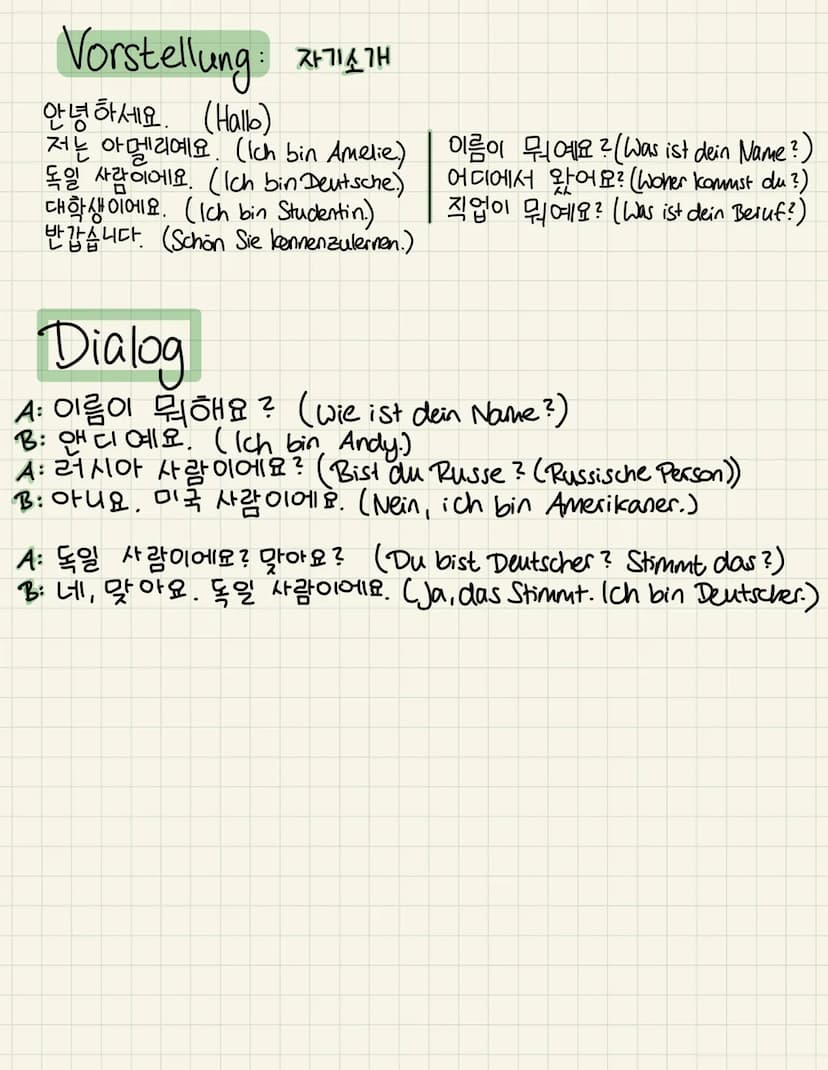 Vorstellung: 자기소개
안녕하세요. (Hallo)
저는 아멜리예요. (Ich bin Amelie)
독일 사람이이에요. (Ich bin Deutsche.)
대학생이에요. (Ich bin Studentin.)
반갑습니다. (Schön Sie kennenzulernen.)
이름이 뭐예요? (Was ist dein Name?)
어디에서 왔어요? (Woher kommst du?)
직업이 뭐예요? (Was ist dein Beruf?)
Dialog
A: 이름이 뭐해요? (Wie ist dein Name?)
B: 앤디예요. (Ich bin Andy.)
A: 러시아 사람이에요? (Bist du Russe? (Russische Person))
B: 아니요. 미국 사람이에요. (Nein, ich bin Amerikaner.)
A: 독일 사람이에요? 맞아요? (Du bist Deutscher? Stimmt das?)
B: 네, 맞아요. 독일 사람이에요. (Ja, das Stimmt. Ich bin Deutscher.)